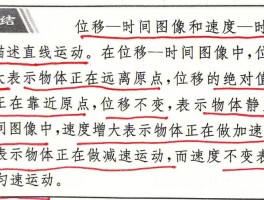 结
位移—时间图像和速度—时
描述直线运动。在位移—时间图像中,位
大表示物体正在远离原点,位移的绝对值
正在靠近原点,位移不变,表示物体静
间图像中,速度增大表示物体正在做加速
表示物体正在做减速运动,而速度不变表
匀速运动。